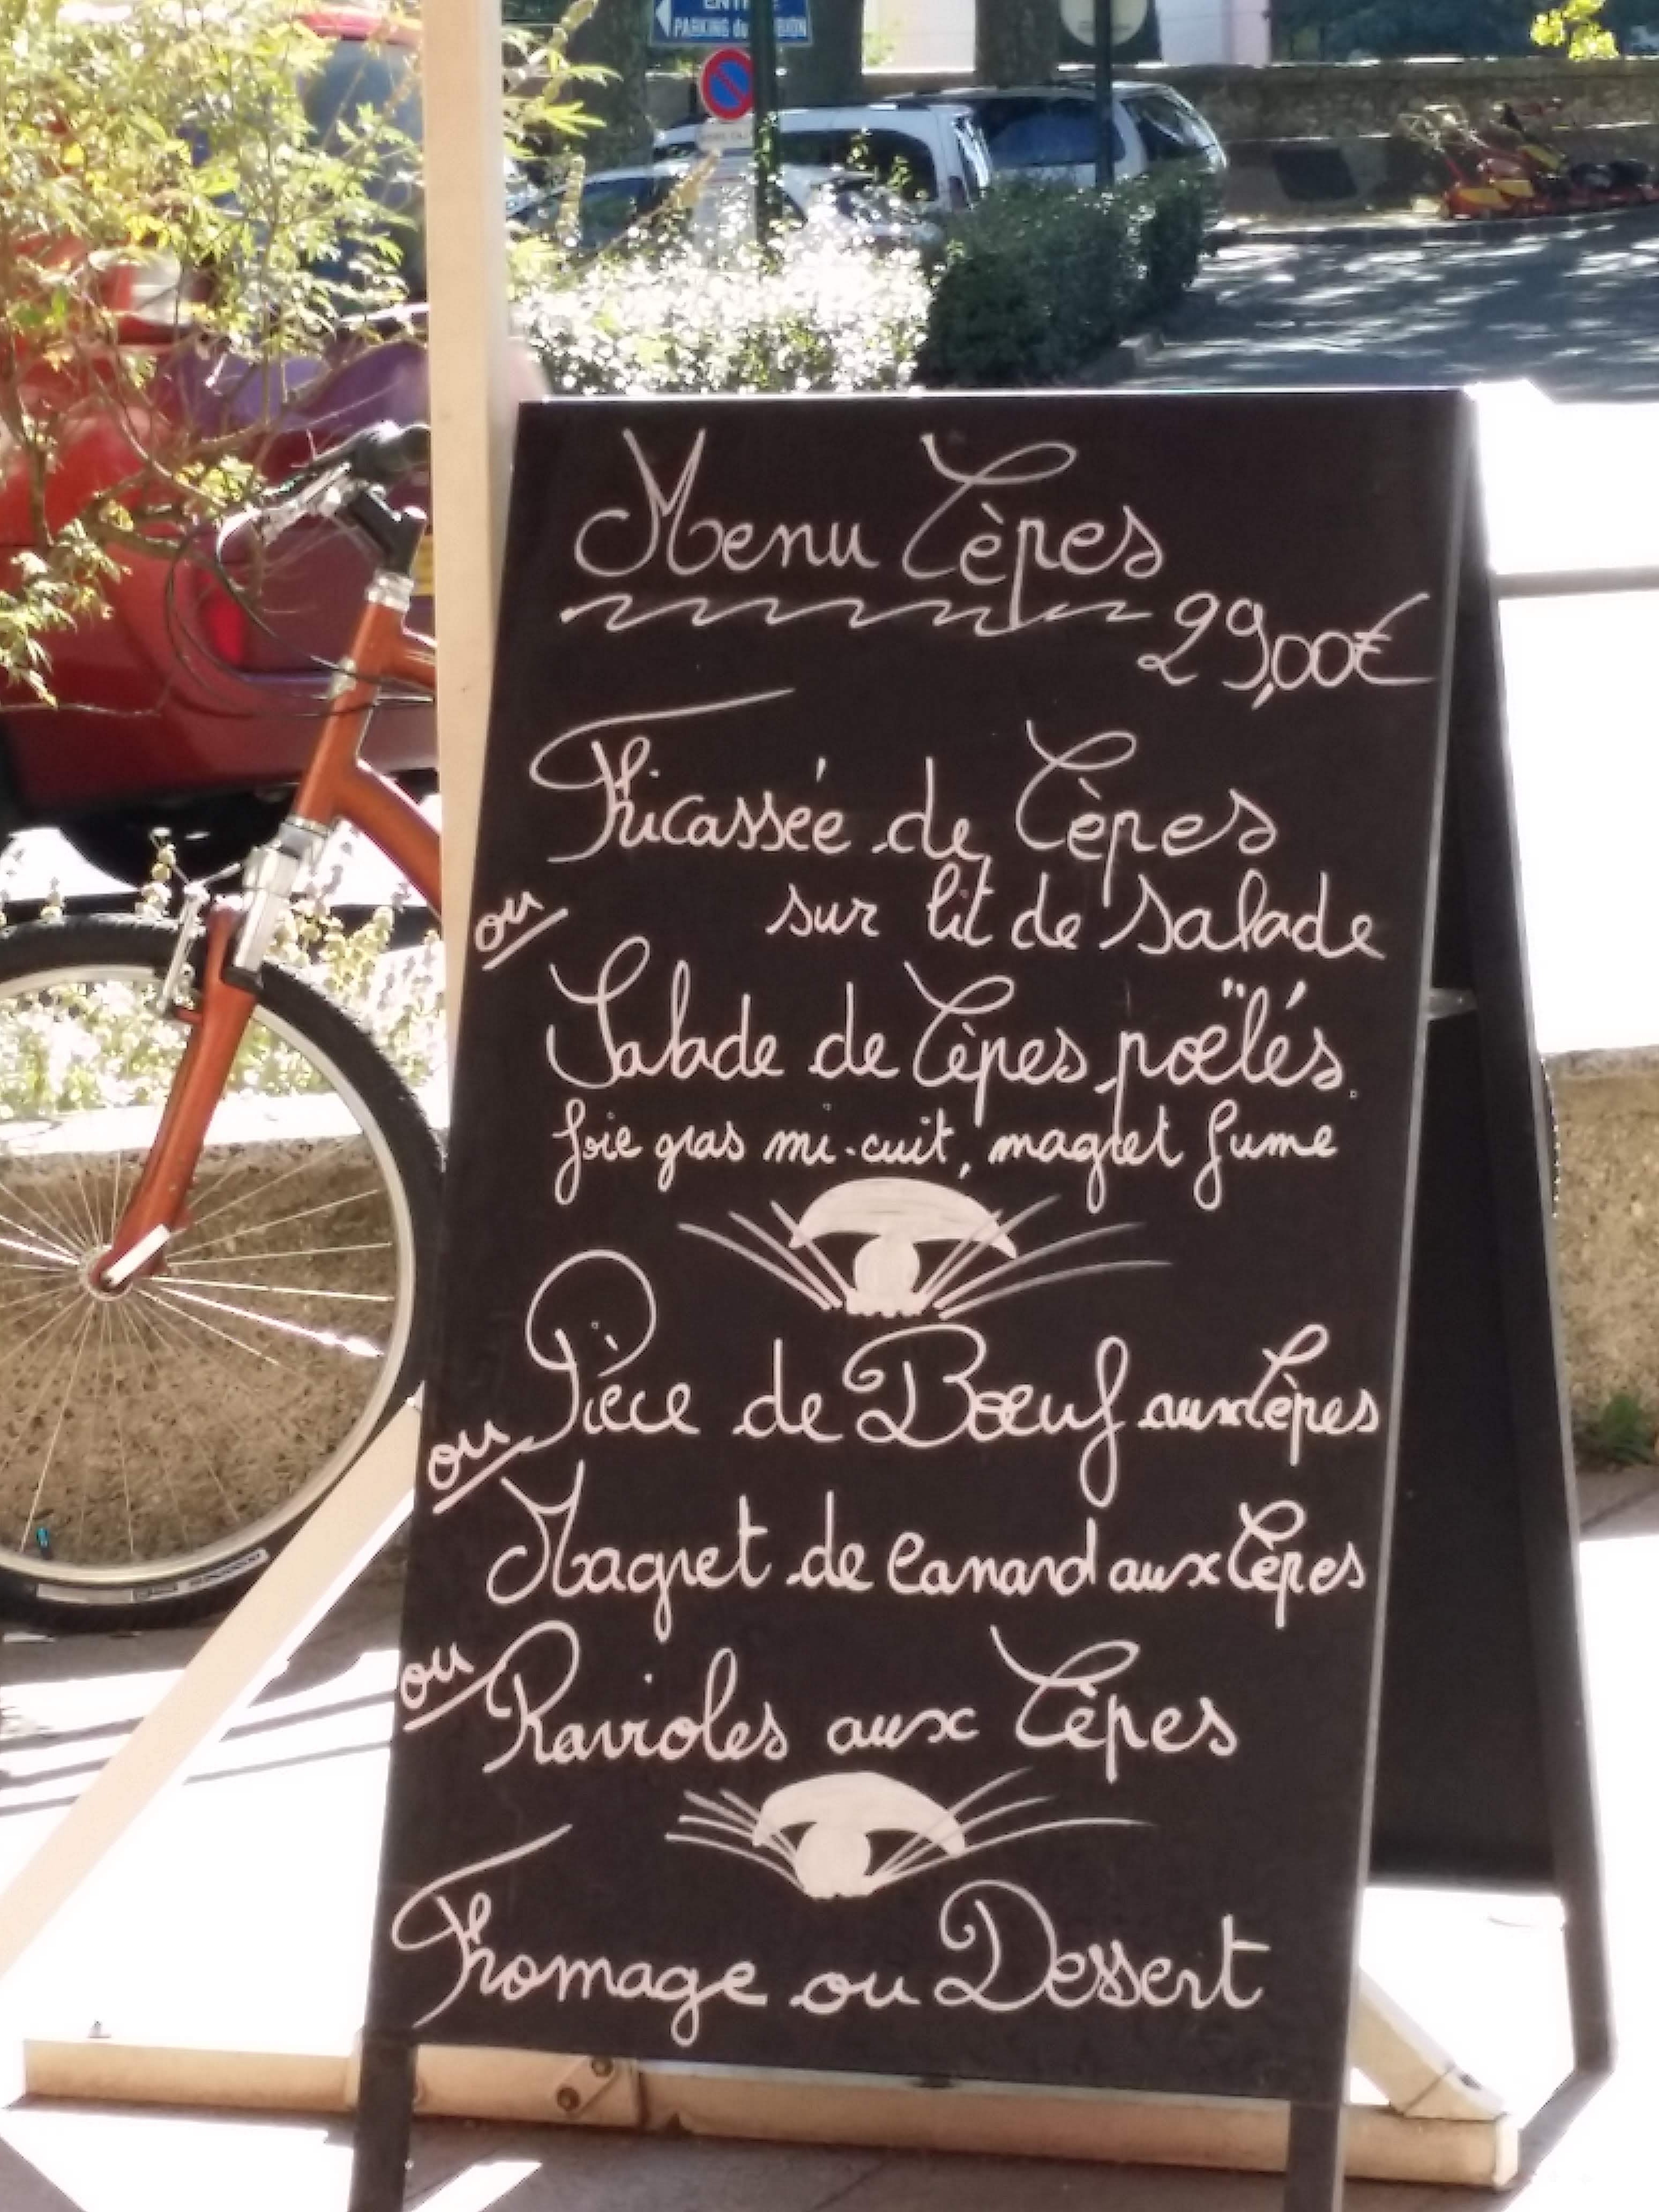 PARKING du
Menu Cèpes
29,00€
Fricassée de Cèpes
sur lit de Salade
ou
Salade de Cèpes poëlés
foie gras mi-cuit, magret fumé
Pièce de Bœuf aux Cèpes
ou
Magret de Canard aux Cèpes
ou
Ravioles aux Cèpes
Fromage ou Dessert